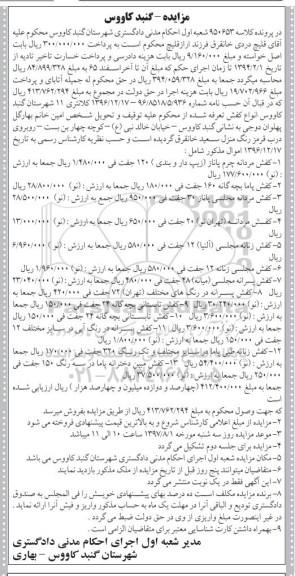 مزایده - گنبد کاووس
در پرونده کلاسه ۹۵۰۶۵۳ شعبه اول احکام مدنی دادگستری شهرستان گنبد کاووس محکوم علیه
آقای قلیچ دردی خانقرق فرزند ارازقلیچ محکوم است به پرداخت ۳۰۰/۰۰۰/۰۰۰ ریال بابت
اصل خواسته و مبلغ ۹/۱۶۰/۰۰۰ ریال بابت هزینه دادرسی و پرداخت خسارت تاخیر تادیه از
تاریخ ۱۳۹۴/۲/۱ تا زمان اجرای حکم که مبلغ آن تا آخر اسفند ۶۵ به مبلغ ۸۴/۸۹۹/۳۲۸ ریال
محاسبه میگردد جمعا به مبلغ ۳۹۴/۰۵۹/۳۲۸ ریال در حق محکوم له جمیله آتابای و پرداخت
مبلغ ۱۹/۷۰۲/۹۶۶ ریال بابت هزینه اجرا در حق دولت در مجموع به مبلغ ۴۱۳/۷۶۲/۲۹۴ ریال
که در قبال آن حسب نامه شماره ۹۶/۸۵۱۸/۵/۹۳۶ - ۱۳۹۶/۱۲/۱۷ کلانتری ۱۱ شهرستان گنبد
کاووس انواع کفش تعرفه شـده از محکوم علیه توقیف و تحویل شـخص امین خانم بهارگل
پهلوان دوجی به نشانی گنبد کاووس - خیابان خالد نبی (ع) - کوچه چهار بن بست - روبروی
درب قرمز رنگ منزل سعید خانقرق گردیده است و حسب نظریه کارشناس رسمی به تاریخ
۱۳۹۶/۱۲/۱۷ اموال مذکور شامل:
۱- کفش مردانه چرم پاناز (زیپ دار و بندی) ۱۲۰ جفت فی ۱/۴۸۰/۰۰۰ ریال جمعا به ارزش
: (نو) ۱۷۷/۶۰۰/۰۰۰ ریال
۲- کفش پاما بچه گانه ۱۶۰ جفت فی ۱۸۰/۰۰۰ ریال جمعا به ارزش : (نو) ۲۸/۸۰۰/۰۰۰ ریال
۳- کفش مردانه مجلسی پاناز ۳۰ جفت فی ۹۵۰/۰۰۰ ریال جمع به ارزش : (نو) ۲۸/۵۰۰/۰۰۰
ریال
۴- کفش مردانه (تهران) ۲۰ جفت فی ۶۵۰/۰۰۰ ریال جمعا به ارزش : (نو) ۱۳/۰۰۰/۰۰۰
ریال
۵- کفش زنانه مجلسی (آلتا) ۱۲ جفت فی ۵۸۰/۰۰۰ ریال جمعا به ارزش : (نو) ۶/۹۶۰/۰۰۰
ریال
۶- کفش مجلسی زنانه ۱۲ جفت فی ۵۸۰/۰۰۰ ریال جمعا به ارزش : (نو) ۱/۹۶۰/۰۰۰ ریال
۷- کفش پسرانه مجلسی (میانه) ۲۸ جفت فی ۴۸۰/۰۰۰ ریال جمعا به ارزش : (نو) ۲۳/۰۴۰/۰۰۰
ریال ۸- کفش پسرانه در رنگ های مختلف (تهران) ۷۲ جفت فی ۴۲۰/۰۰۰ ریال جمعا به
ارزش (نو) ۳۰/۲۴۰/۰۰۰ ریال ۹- کفش تابستانی بچه گانه ۲۴ جفت فی ۱۵۰/۰۰۰ ریال جمعا
به ارزش : (نو) ۳/۶۰۰/۰۰۰ ریال ۱۰- کفش تابستانی بچه گانه ۲۴ جفت فی ۱۵۰/۰۰۰ ریال
جمعا به ارزش : (نو) ۳/۶۰۰/۰۰۰ ریال ۱۱- کفش پسرانه در رنگ آبی در سایز مختلف ۱۲
جفت فی ۱۵۰/۰۰۰ ریال جمعا به ارزش : (نو) ۱/۸۰۰/۰۰۰ ریال
۱۲- کفش زنانه طبی پاما در سایز مختلف و تک رنگ ۳۲۰ جفت فی ۱۷۰/۰۰۰ ریال جمعا
به ارزش : (نو) ۵۴/۴۰۰/۰۰۰ ریال ۱۳- کفش مبین دخترانه پاما در سه رنگ ۱۵۰ جفت فی
۲۵۰/۰۰۰ ریال جمعا به ارزش : (نو) ۳۷/۵۰۰/۰۰۰ ریال
جمعا به مبلغ ۴۱۲/۴۰۰/۰۰۰ (چهارصد و دوازده میلیون و چهارصد هزار) ریال ارزیابی شده
است
که جهت وصول محکوم به مبلغ ۴۱۳/۷۶۲/۲۹۴ ریال از طریق مزایده بفروش میرسد
۲- مزایده از مبلغ اعلامی کارشناس شروع و به بالاترین قیمت پیشنهادی فروخته می شود
۳- موعد مزایده روز سه شنبه مورخه ۱۳۹۷/۸/۱ ساعت ۱۰ الی ۱۱ میباشد
۴- مزایده برای جلسه دوم تشکیل می گردد
۵- مکان مزایده شعبه اول اجرای احکام مدنی دادگستری شهرستان گنبد کاووس می باشد
۶- متقاضیان میتوانند پنج روز قبل از تاریخ مزایده از ملک مذکور بازدید نمایند
۷- این آگهی فقط در یک نوبت منتشر می گردد
۸- برنده مزایده مکلف است ده درصد بهای پیشنهادی خویش را فی المجلس به صندوق
دادگستری تودیع و الباقی آنرا در مهلت یک ماه به حساب مذکور واریز و فیش آنرا ارائه نماید.
در غیر اینصورت مبلغ واریزی از وی در حق دولت ضبط می گردد.
۹- بهمراه داشتن کارت شناسایی معتبر برای متقاضیان الزامی است.
مدیر شعبه اول اجرای احکام مدنی دادگستری
شهرستان گنبد کاووس - بهاری